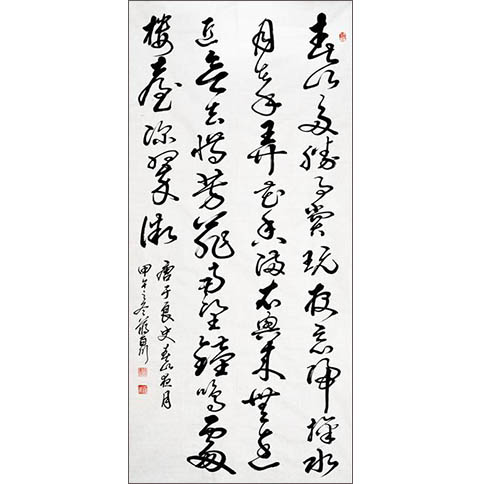 春山多勝事賞玩夜忘歸掬水
月在手弄花香滿衣興來無遠
近欲去惜芳菲南望鐘鳴處
樓臺深翠微
唐于良史春山夜月
甲午之冬